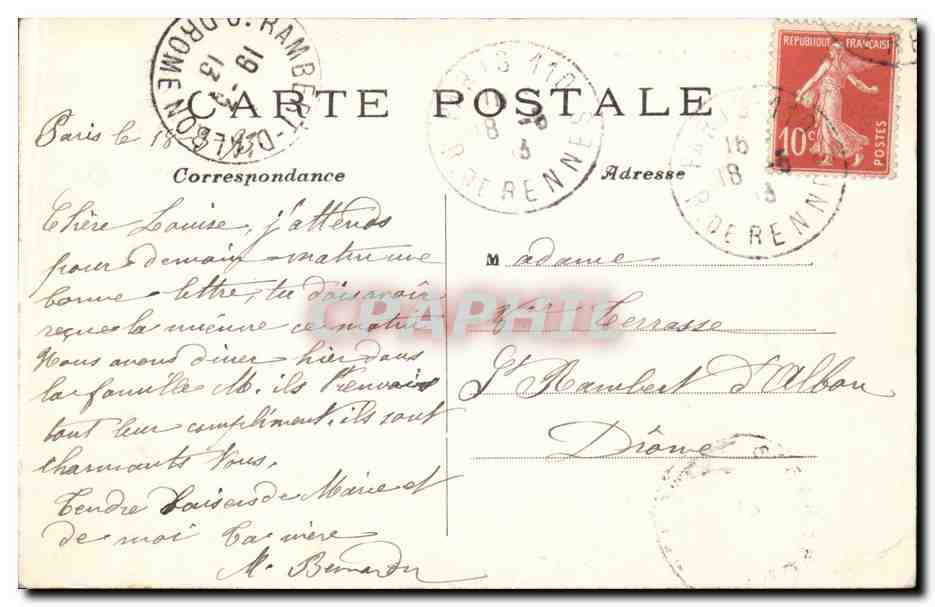 CARTE POSTALE
Correspondance
Adresse
REPUBLIQUE FRANÇAISE
10c
POSTES
PARIS 110
18 -3
13
R. DE RENNES
PARIS 110
16
18 -3
13
R. DE RENNES
ST RAMBERT-D'ALBON
19 -3
13
DROME
Paris le 18
Chère Louise, j'attends
pour demain matin une
bonne lettre, tu dois avoir
reçue la mienne ce matin
Nous avons diner hier dans
la famille M. ils t'envois
tout leur compliment, ils sont
charmants tous.
Tendre baisers de Marie et
de moi Ta mère
M.
Madame
Vve Terrasse
St Rambert d'Albon
Drôme
CPAPHIL